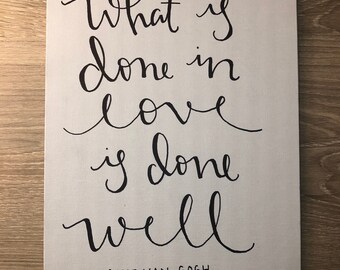 What is
done in
love
is done
well
VAN GOGH